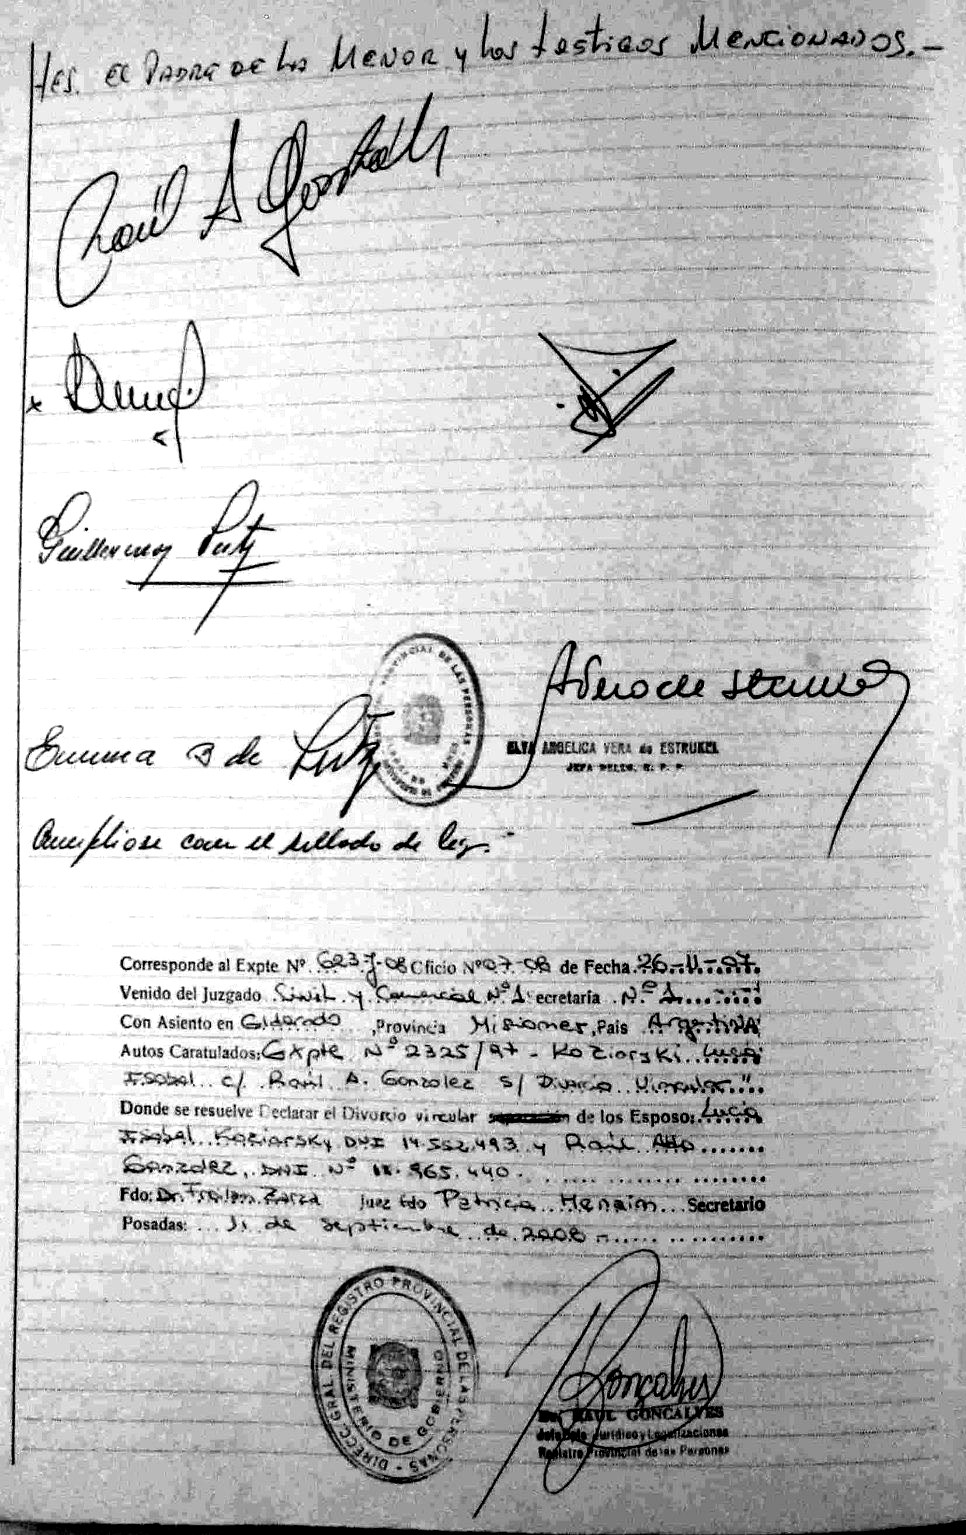 tes. El Padre de la Menor y los testigos Mencionados.-
Raúl A Gonzalez
x
Guillermo Lutz
Emma B de Lutz
PROVINCIAL DE LAS PERSONAS
ELTA ANGELICA VERA de ESTRUKEL
JEFA DELEG. R. P. P.
Cumpliose con el sellado de ley.-
Corresponde al Expte Nº 623-J-08 Oficio Nº 07-08 de Fecha 26-11-07
Venido del Juzgado Civil y Comercial Nº 1 Secretaría Nº 1
Con Asiento en Eldorado, Provincia Misiones, País Argentina
Autos Caratulados: Expte Nº 2325/97 - Koziarski Lucia
Isabel c/ Raúl A. Gonzalez s/ Divorcio Vincular"
Donde se resuelve Declarar el Divorcio vincular de los Esposo: Lucia
Isabel Koziarsky DNI 14.552.493 y Raúl
Gonzalez, DNI Nº 965.440
Fdo: Dr. Juez fdo Patricia Secretario
Posadas: 11 de septiembre de 2008
DIRECC. GRAL. DEL REGISTRO PROVINCIAL DE LAS PERSONAS
MINISTERIO DE GOBIERNO
Goncalves
RAUL GONCALVES
Jefe Dpto Jurídico y Legalizaciones
Registro Provincial de las Personas